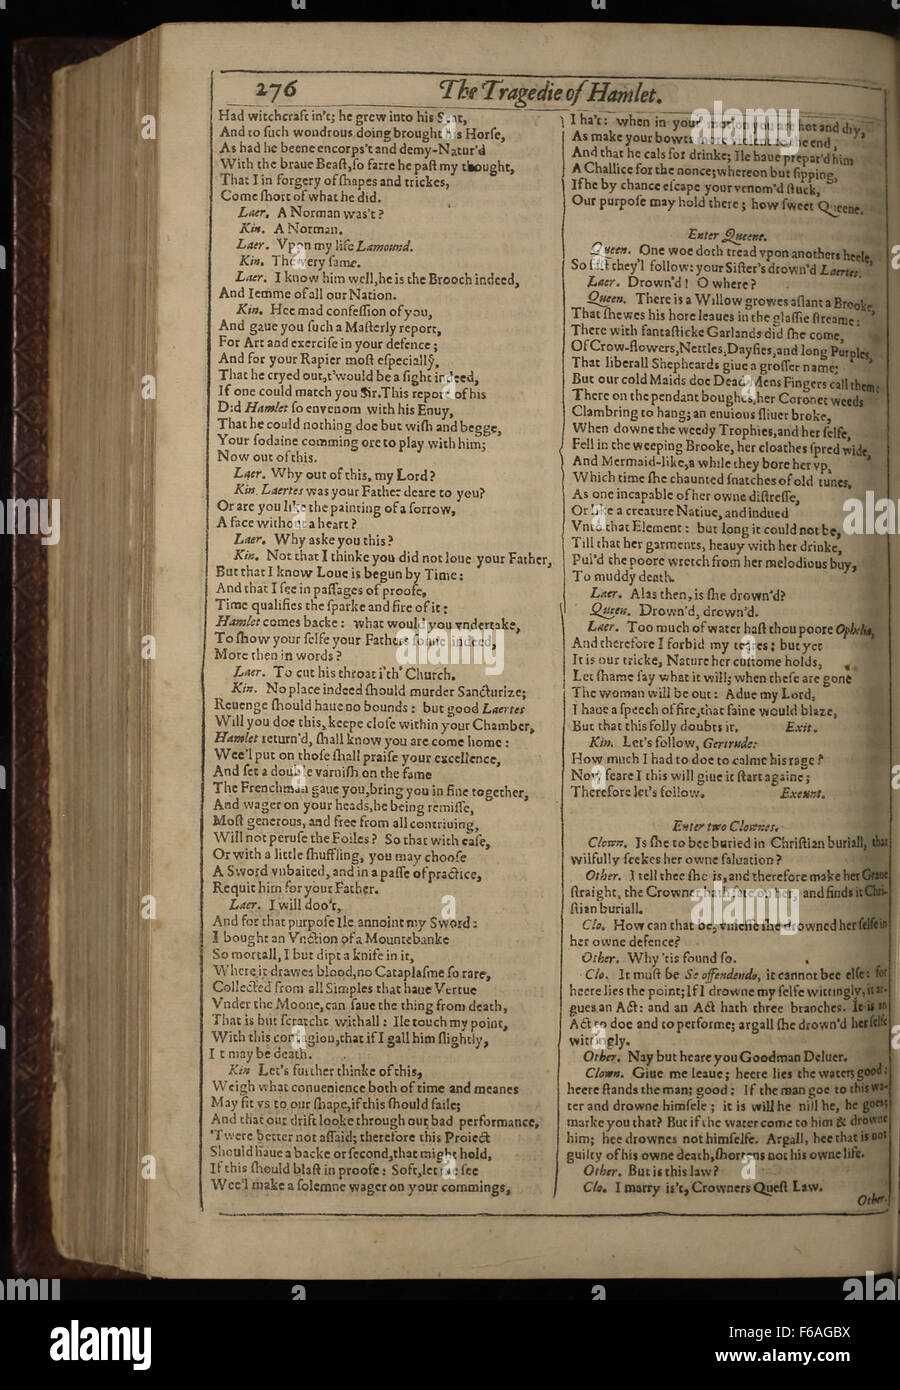 276 The Tragedie of Hamlet.
Had witchcraft in't; he grew into his Seat,
And to such wondrous doing brought his Horse,
As had he beene encorps't and demy-Natur'd
With the braue Beast, so farre he past my thought,
That I in forgery of shapes and trickes,
Come short of what he did.
Laer. A Norman was't?
Kin. A Norman.
Laer. Vpon my life Lamound.
Kin. The very same.
Laer. I know him well, he is the Brooch indeed,
And Iemme of all our Nation.
Kin. Hee mad confession of you,
And gaue you such a Masterly report,
For Art and exercise in your defence;
And for your Rapier most especially,
That he cryed out, t'would be a sight indeed,
If one could match you Sir. This report of his
Did Hamlet so envenom with his Enuy,
That he could nothing doe but wish and begge,
Your sodaine comming ore to play with him;
Now out of this.
Laer. Why out of this, my Lord?
Kin. Laertes was your Father deare to you?
Or are you like the painting of a sorrow,
A face without a heart?
Laer. Why aske you this?
Kin. Not that I thinke you did not loue your Father,
But that I know Loue is begun by Time:
And that I see in passages of proofe,
Time qualifies the sparke and fire of it:
Hamlet comes backe: what would you vndertake,
To show your selfe your Fathers sonne indeed,
More then in words?
Laer. To cut his throat i'th' Church.
Kin. No place indeed should murder Sancturize;
Reuenge should haue no bounds: but good Laertes
Will you doe this, keepe close within your Chamber,
Hamlet return'd, shall know you are come home:
Wee'l put on those shall praise your excellence,
And set a double varnish on the fame
The Frenchman gaue you, bring you in fine together,
And wager on your heads, he being remisse,
Most generous, and free from all contriuing,
Will not peruse the Foiles? So that with ease,
Or with a little shuffling, you may choose
A Sword vnbaited, and in a passe of practice,
Requit him for your Father.
Laer. I will doo't,
And for that purpose Ile annoint my Sword:
I bought an Vnction of a Mountebanke
So mortall, I but dipt a knife in it,
Where it drawes blood, no Cataplasme so rare,
Collected from all Simples that haue Vertue
Vnder the Moone, can saue the thing from death,
That is but scratcht withall: Ile touch my point,
With this contagion, that if I gall him slightly,
It may be death.
Kin Let's further thinke of this,
Weigh what conuenience both of time and meanes
May fit vs to our shape, if this should faile;
And that our drift looke through our bad performance,
'Twere better not assaid; therefore this Proiect
Should haue a backe or second, that might hold,
If this should blast in proofe: Soft, let me see
Wee'l make a solemne wager on your commings,
I ha't: when in your motion you are hot and dry,
As make your bowts more violent to the end,
And that he cals for drinke; Ile haue prepar'd him
A Challice for the nonce; whereon but sipping,
If he by chance escape your venom'd stuck,
Our purpose may hold there; how sweet Queene.
Enter Queene.
Queen. One woe doth tread vpon anothers heele,
So fast they'l follow: your Sister's drown'd Laertes.
Laer. Drown'd! O where?
Queen. There is a Willow growes aslant a Brooke,
That shewes his hore leaues in the glassie streame:
There with fantasticke Garlands did she come,
Of Crow-flowers, Nettles, Daysies, and long Purples,
That liberall Shepheards giue a grosser name;
But our cold Maids doe Dead Mens Fingers call them:
There on the pendant boughes, her Coronet weeds
Clambring to hang; an enuious sliuer broke,
When downe the weedy Trophies, and her selfe,
Fell in the weeping Brooke, her cloathes spred wide,
And Mermaid-like, a while they bore her vp,
Which time she chaunted snatches of old tunes,
As one incapable of her owne distresse,
Or like a creature Natiue, and indued
Vnto that Element: but long it could not be,
Till that her garments, heauy with her drinke,
Pul'd the poore wretch from her melodious buy,
To muddy death.
Laer. Alas then, is she drown'd?
Queen. Drown'd, drown'd.
Laer. Too much of water hast thou poore Ophelia,
And therefore I forbid my teares: but yet
It is our tricke, Nature her custome holds,
Let shame say what it will; when these are gone
The woman will be out: Adue my Lord,
I haue a speech of fire, that faine would blaze,
But that this folly doubts it. Exit.
Kin. Let's follow, Gertrude:
How much I had to doe to calme his rage?
Now feare I this will giue it start againe;
Therefore let's follow. Exeunt.
Enter two Clownes.
Clown. Is she to bee buried in Christian buriall, that
wilfully seekes her owne saluation?
Other. I tell thee she is, and therefore make her Graue
straight, the Crowner hath sate on her, and finds it Chri-
stian buriall.
Clo. How can that be, vnlesse she drowned her selfe in
her owne defence?
Other. Why 'tis found so.
Clo. It must be Se offendendo, it cannot bee else: for
heere lies the point; If I drowne my selfe wittingly, it ar-
gues an Act: and an Act hath three branches. It is an
Act to doe and to performe; argall she drown'd her selfe
wittingly.
Other. Nay but heare you Goodman Deluer.
Clown. Giue me leaue; heere lies the water; good:
heere stands the man; good: If the man goe to this wa-
ter and drowne himsele; it is will he nill he, he goes;
marke you that? But if the water come to him & drowne
him; hee drownes not himselfe. Argall, hee that is not
guilty of his owne death, shortens not his owne life.
Other. But is this law?
Clo. I marry is't, Crowners Quest Law.
Other.
alamy
Image ID: F6AGBX
www.alamy.com